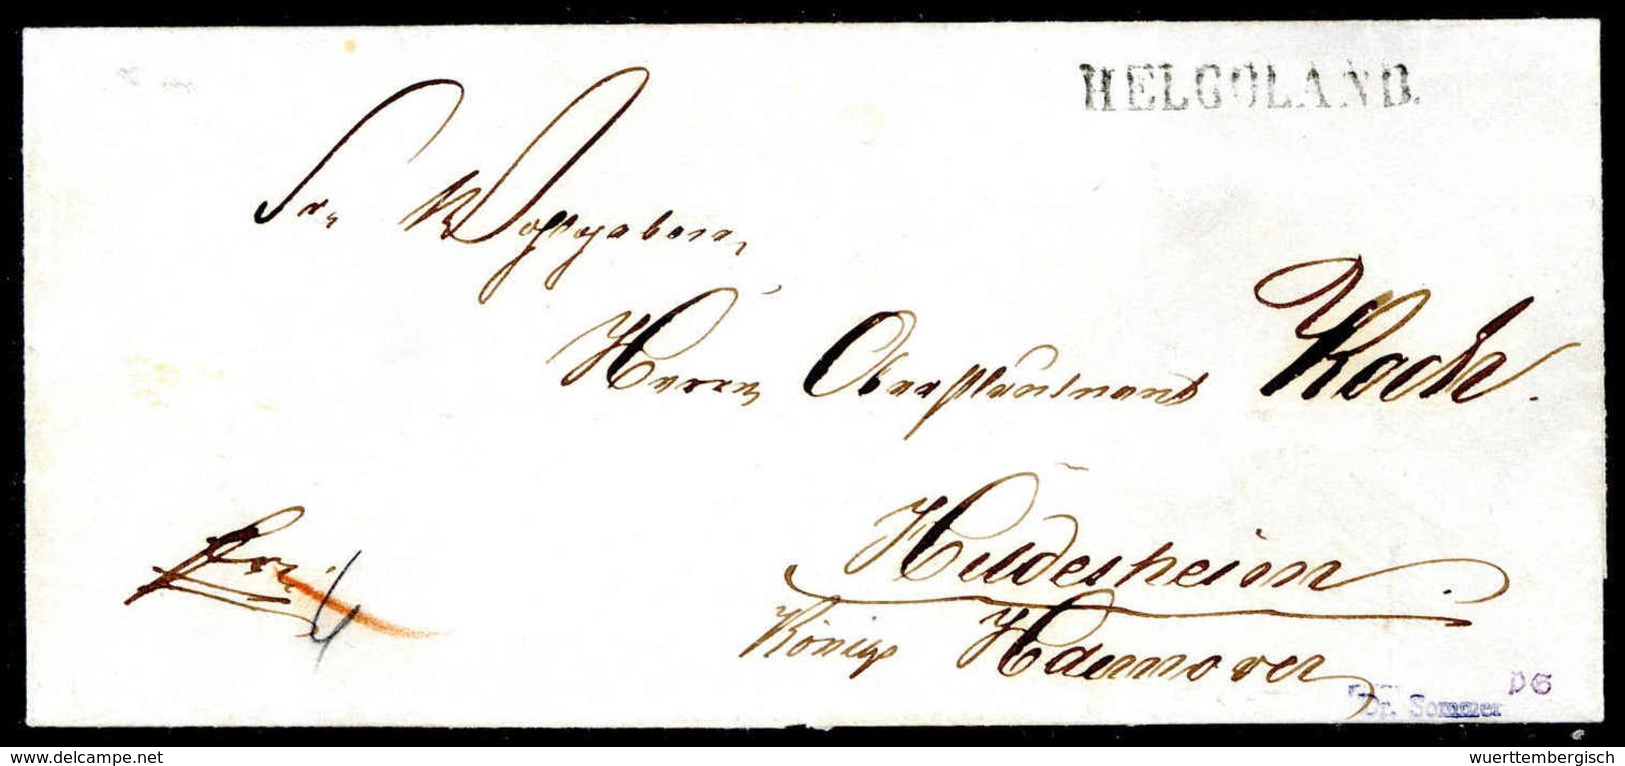 HELGOLAND.
Sr. Wohlgeborn
Herrn Oberstleutnant Koch.
Hildesheim
Königr Hannover
frei
4
PG
Dr. Sommer
Prich on delcampe.net
wuerttembergisch